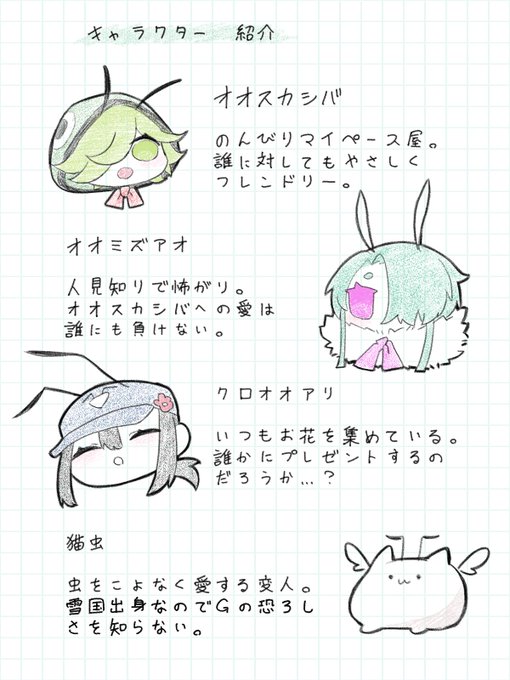 キャラクター 紹介
オオスカシバ
のんびりマイペース屋。
誰に対してもやさしく
フレンドリー。
オオミズアオ
人見知りで怖がり。
オオスカシバへの愛は
誰にも負けない。
クロオオアリ
いつもお花を集めている。
誰かにプレゼントするの
だろうか…?
猫虫
虫をこよなく愛する変人。
雪国出身なのでGの恐ろし
さを知らない。